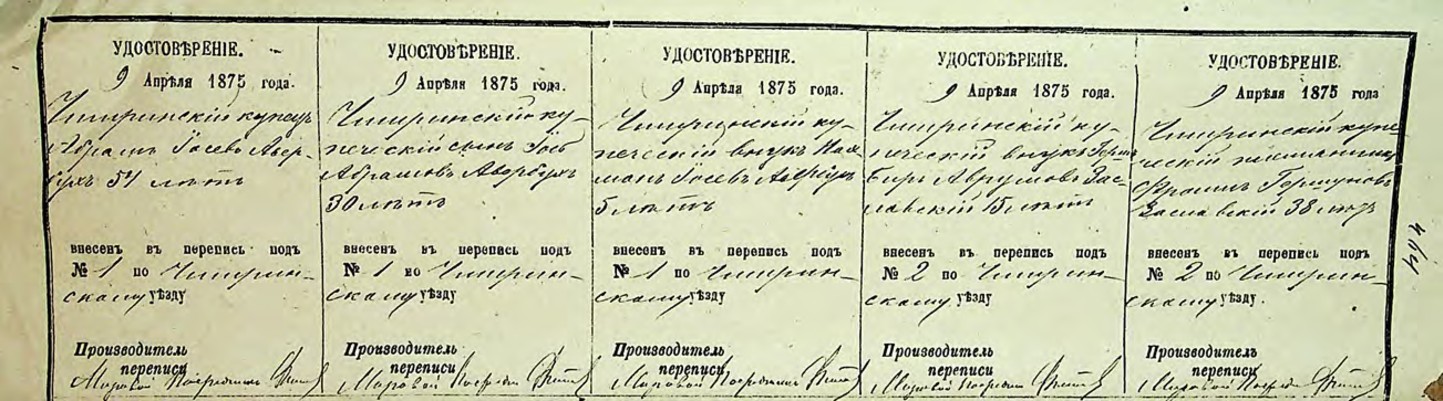 УДОСТОВѢРЕНІЕ.
9 Апрѣля 1875 года.
Чигиринскій купецъ
Абрамъ Іосевъ Авер-
бухъ 54 лѣтъ
внесенъ въ перепись подъ
№ 1 по Чигирин-
скому уѣзду
Производитель
переписи
Мировой Посредникъ
УДОСТОВѢРЕНІЕ.
9 Апрѣля 1875 года.
Чигиринскій ку-
печескій сынъ Іось
Абрамовъ Авербухъ
30 лѣтъ
внесенъ въ перепись подъ
№ 1 по Чигирин-
скому уѣзду
Производитель
переписи
Мировой Посредн
УДОСТОВѢРЕНІЕ.
9 Апрѣля 1875 года.
Чигиринскій ку-
печескій внукъ Нах-
манъ Іосевъ Авербухъ
5 лѣтъ
внесенъ въ перепись подъ
№ 1 по Чигирин-
скому уѣзду
Производитель
переписи
Мировой Посредникъ
УДОСТОВѢРЕНІЕ.
9 Апрѣля 1875 года.
Чигиринскій ку-
печескій внукъ
Аврумовъ Зас-
лавскій 15 лѣтъ
внесенъ въ перепись подъ
№ 2 по Чигирин-
скому уѣзду
Производитель
переписи
Мировой Посредн
УДОСТОВѢРЕНІЕ.
9 Апрѣля 1875 года
Чигиринскій купе
ческій племянникъ
Фроимъ Гершуновъ
Заславскій 38 лѣтъ
внесенъ въ перепись подъ
№ 2 по Чигирин
скому уѣзду.
Производитель
переписи
Мировой Посредн